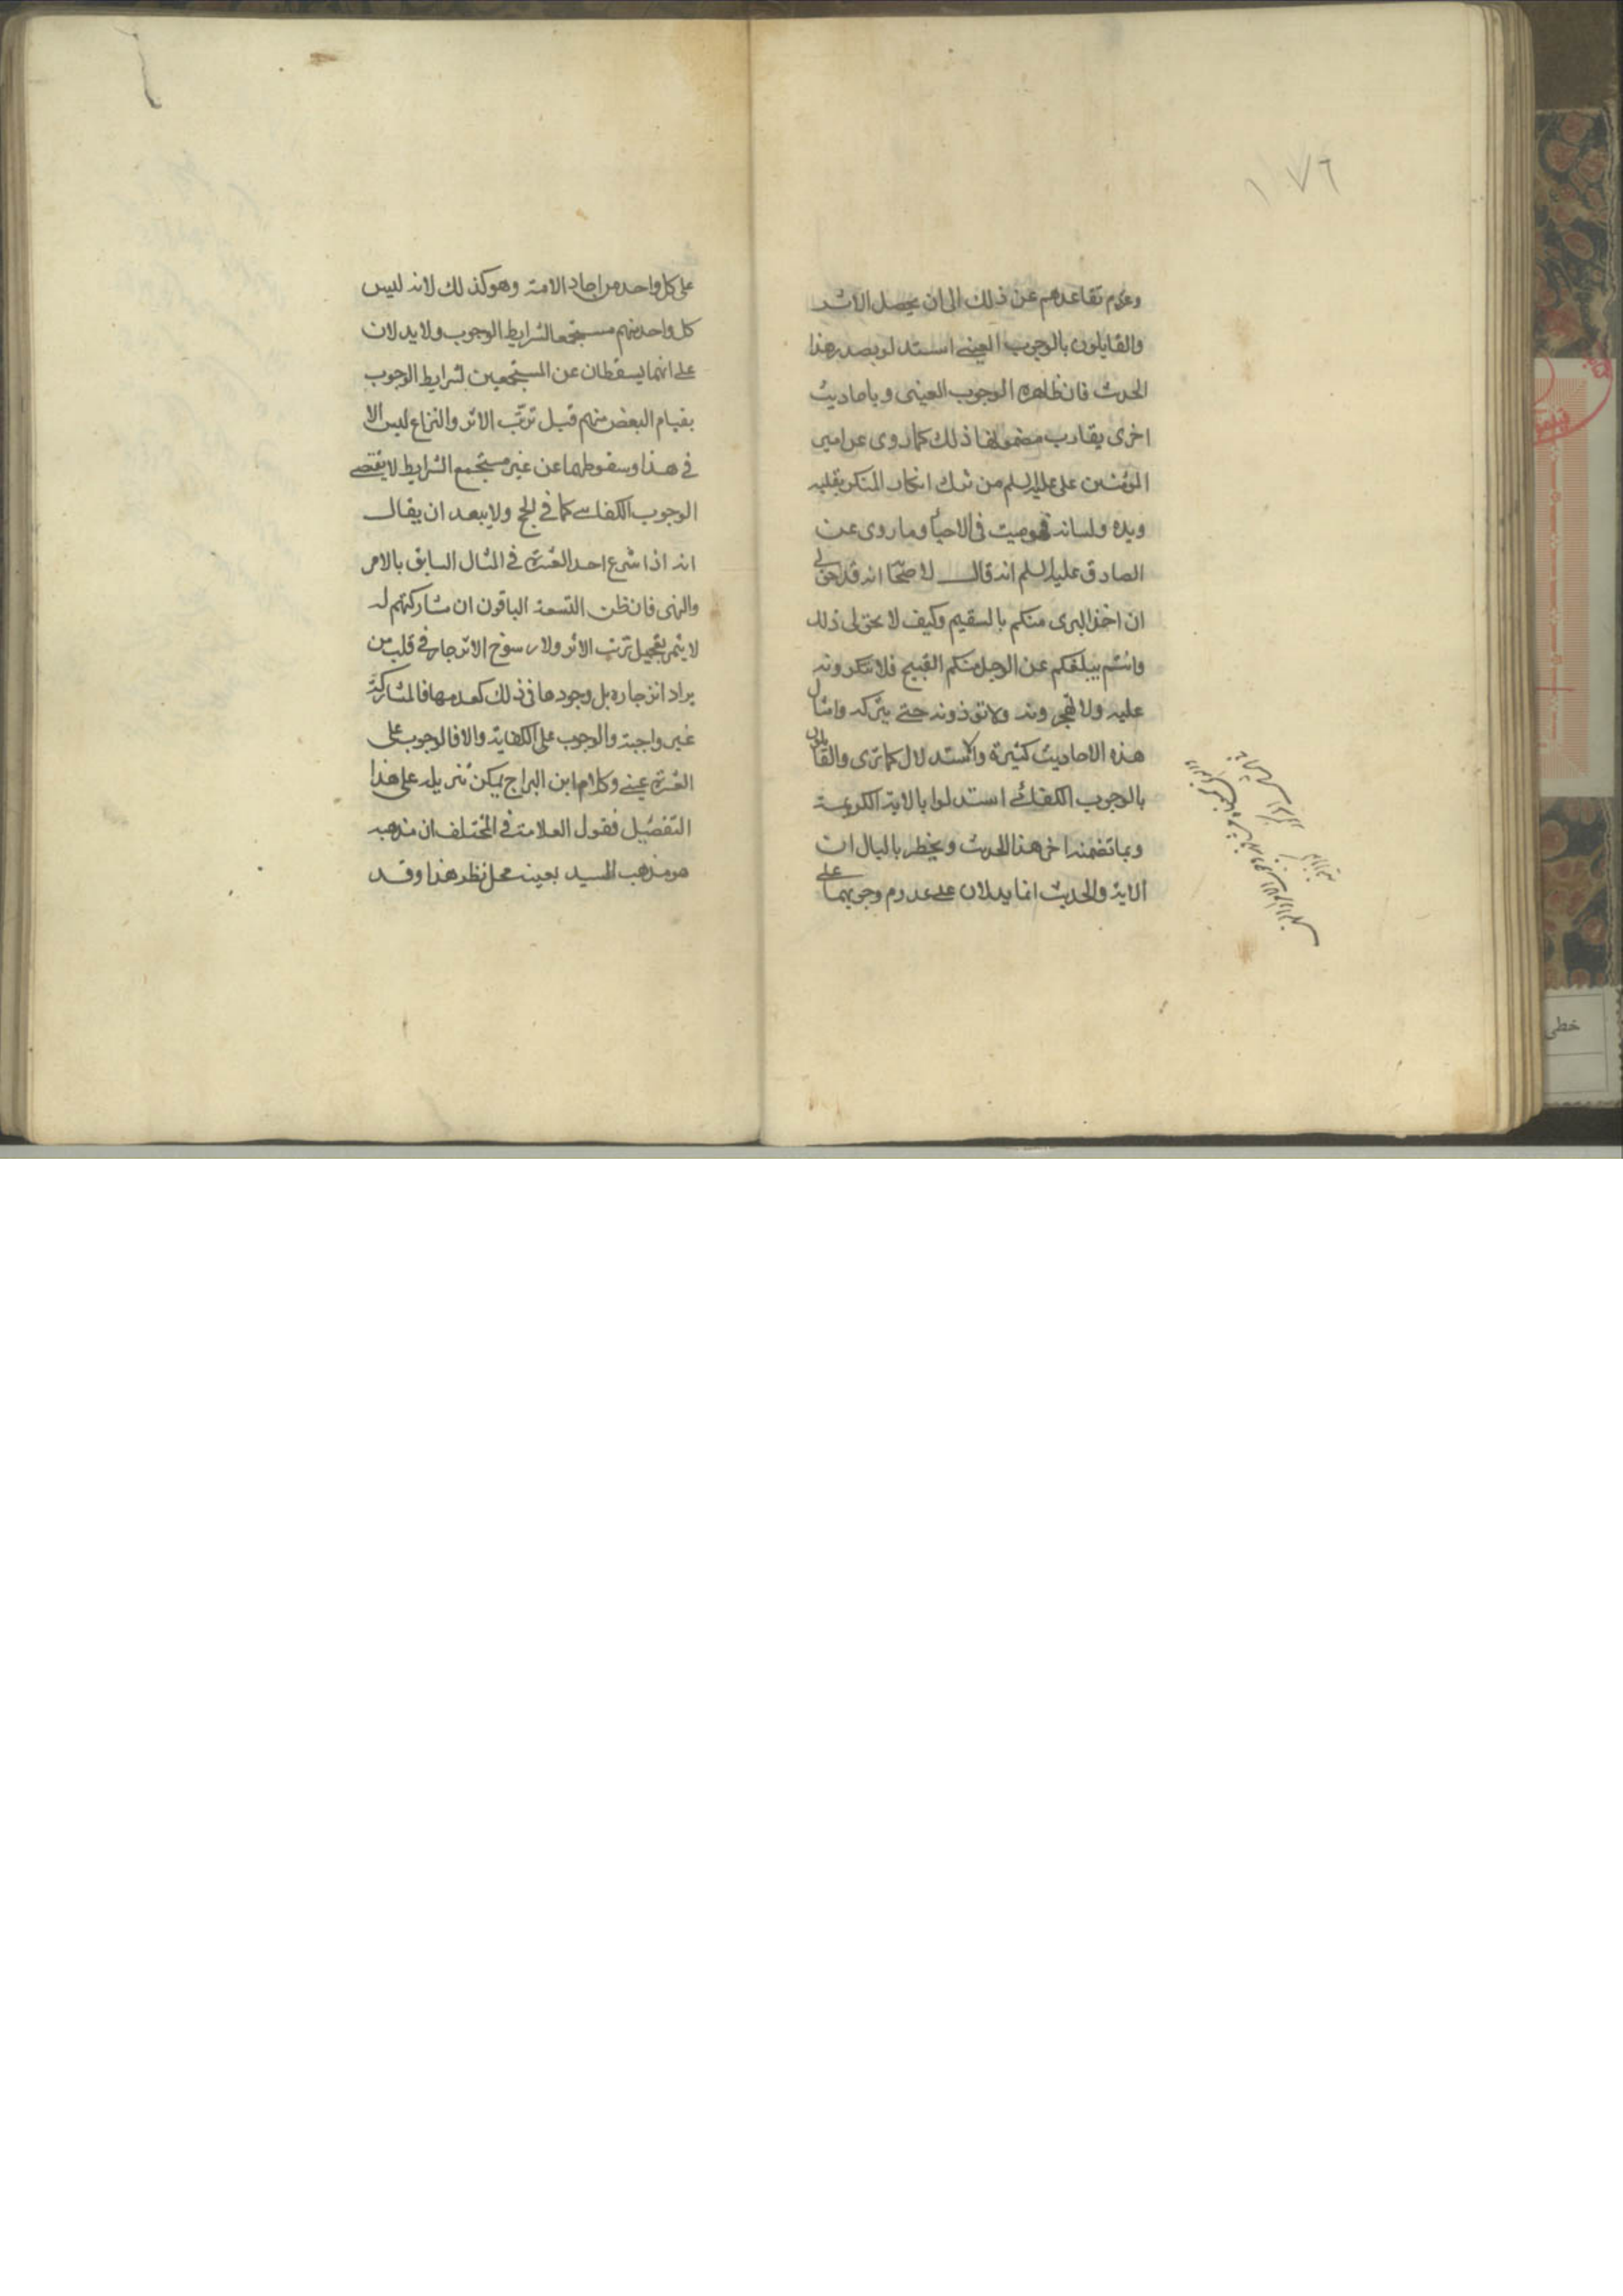 ١٧٦
وعدم تقاعدهم عن ذلك الى ان يحصل الاثر
والقايلون بالوجوب العينى استدلو بصدر هذا
الحديث فان ظاهره الوجوب العينى وباحاديث
اخرى يقارب مضمونها ذلك كما روى عن امير
المؤمنين على عليه السلم من ترك انكار المنكر بقلبه
ويده ولسانه فهو ميت فى الاحياء وما روى عن
الصادق عليه السلم انه قال لاصحابه انه قد حق لى
ان اخذ البرى منكم بالسقيم وكيف لا يحق لى ذلك
وانتم يبلغكم عن الرجل منكم القبيح فلا تنكرونه
عليه ولا تهجرونه ولا تؤذونه حتى يتركه وامثال
هذه الاحاديث كثيرة والاستدلال كما ترى والقايلون
بالوجوب الكفائى استدلوا بالاية الكريمة
وبما تضمنه اخر هذا الحديث ويخطر بالبال ان
الاية والحديث انما يدلان على عدم وجوبهما على
على كل واحد من احاد الامة وهو كذلك لانه ليس
كل واحد منهم مستجمعا لشرايط الوجوب ولا يدلان
على انهما يسقطان عن المستجمعين لشرايط الوجوب
بقيام البعض منهم قبل ترتب الاثر والنزاع ليس الا
فى هذا وسقوطهما عن غير مستجمع الشرايط لا يقتضى
الوجوب الكفاى كما فى الحج ولا يبعد ان يقال
انه اذا شرع احد العشرة فى المثال السابق بالامر
والنهى فان ظن التسعة الباقون ان مشاركتهم له
لا يثمر تعجيل ترتب الاثر ولا رسوخ الانزجار فى قلب من
يراد انزجاره بل وجودها فى ذلك كعدمها فالمشاركة
غير واجبة والوجوب على الكفاية والا فالوجوب على
العشرة عينى وكلام ابن البراج يمكن تنزيله على هذا
التفصيل فقول العلامة فى المختلف ان مذهبه
هو مذهب السيد بعينه محل نظر هذا وقد
خطى